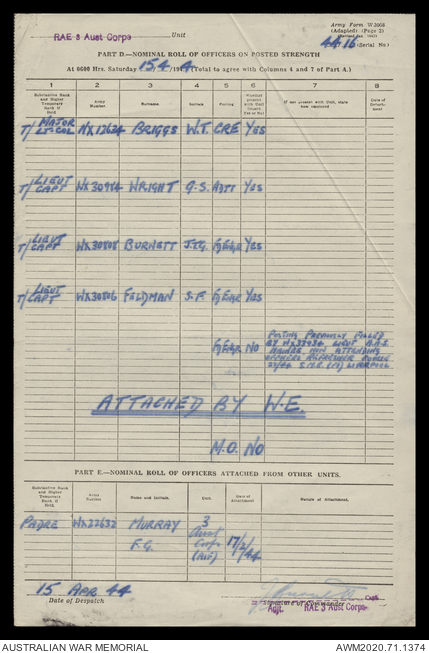 Army Form W.3008
(Adapted) (Page 2)
RAE 3 Aust Corps Unit
4416 (Serial No.)
PART D.—NOMINAL ROLL OF OFFICERS ON POSTED STRENGTH
At 0600 Hrs. Saturday 15/4/1944 (Total to agree with Columns 4 and 7 of Part A.)
1 2 3 4 5 6 7 8
Substantive Rank and Higher Temporary Rank if Held Army Number Surname Initials Posting Whether present with Unit (Insert Yes or No) If not present with Unit, state how employed Date of
T/ MAJOR LT-COL BRIGGS W.T. CRE YES
T/ LIEUT CAPT WRIGHT G.S. ADJT YES
T/ LIEUT CAPT BURNETT Engr YES
T/ LIEUT CAPT FELDMAN S.F. Engr YES
Engr NO POSTING PREVIOUSLY FILLED
BY LIEUT
NOW ATTENDING
OFFICERS REFRESHER COURSE
LIVERPOOL
ATTACHED BY W.E.
M.O. NO
PART E.—NOMINAL ROLL OF OFFICERS ATTACHED FROM OTHER UNITS.
Substantive Rank and Higher Temporary Rank, if Held Army Number Name and Initials. Unit. Date of Attachment Nature of Attachment.
PADRE MURRAY F.G. 3 Aust Corps 17/2/44
15 APR 44
Date of Despatch
Signature of Commander
Capt.
Adjt. RAE 3 Aust Corps
AUSTRALIAN WAR MEMORIAL
AWM2020.71.1374